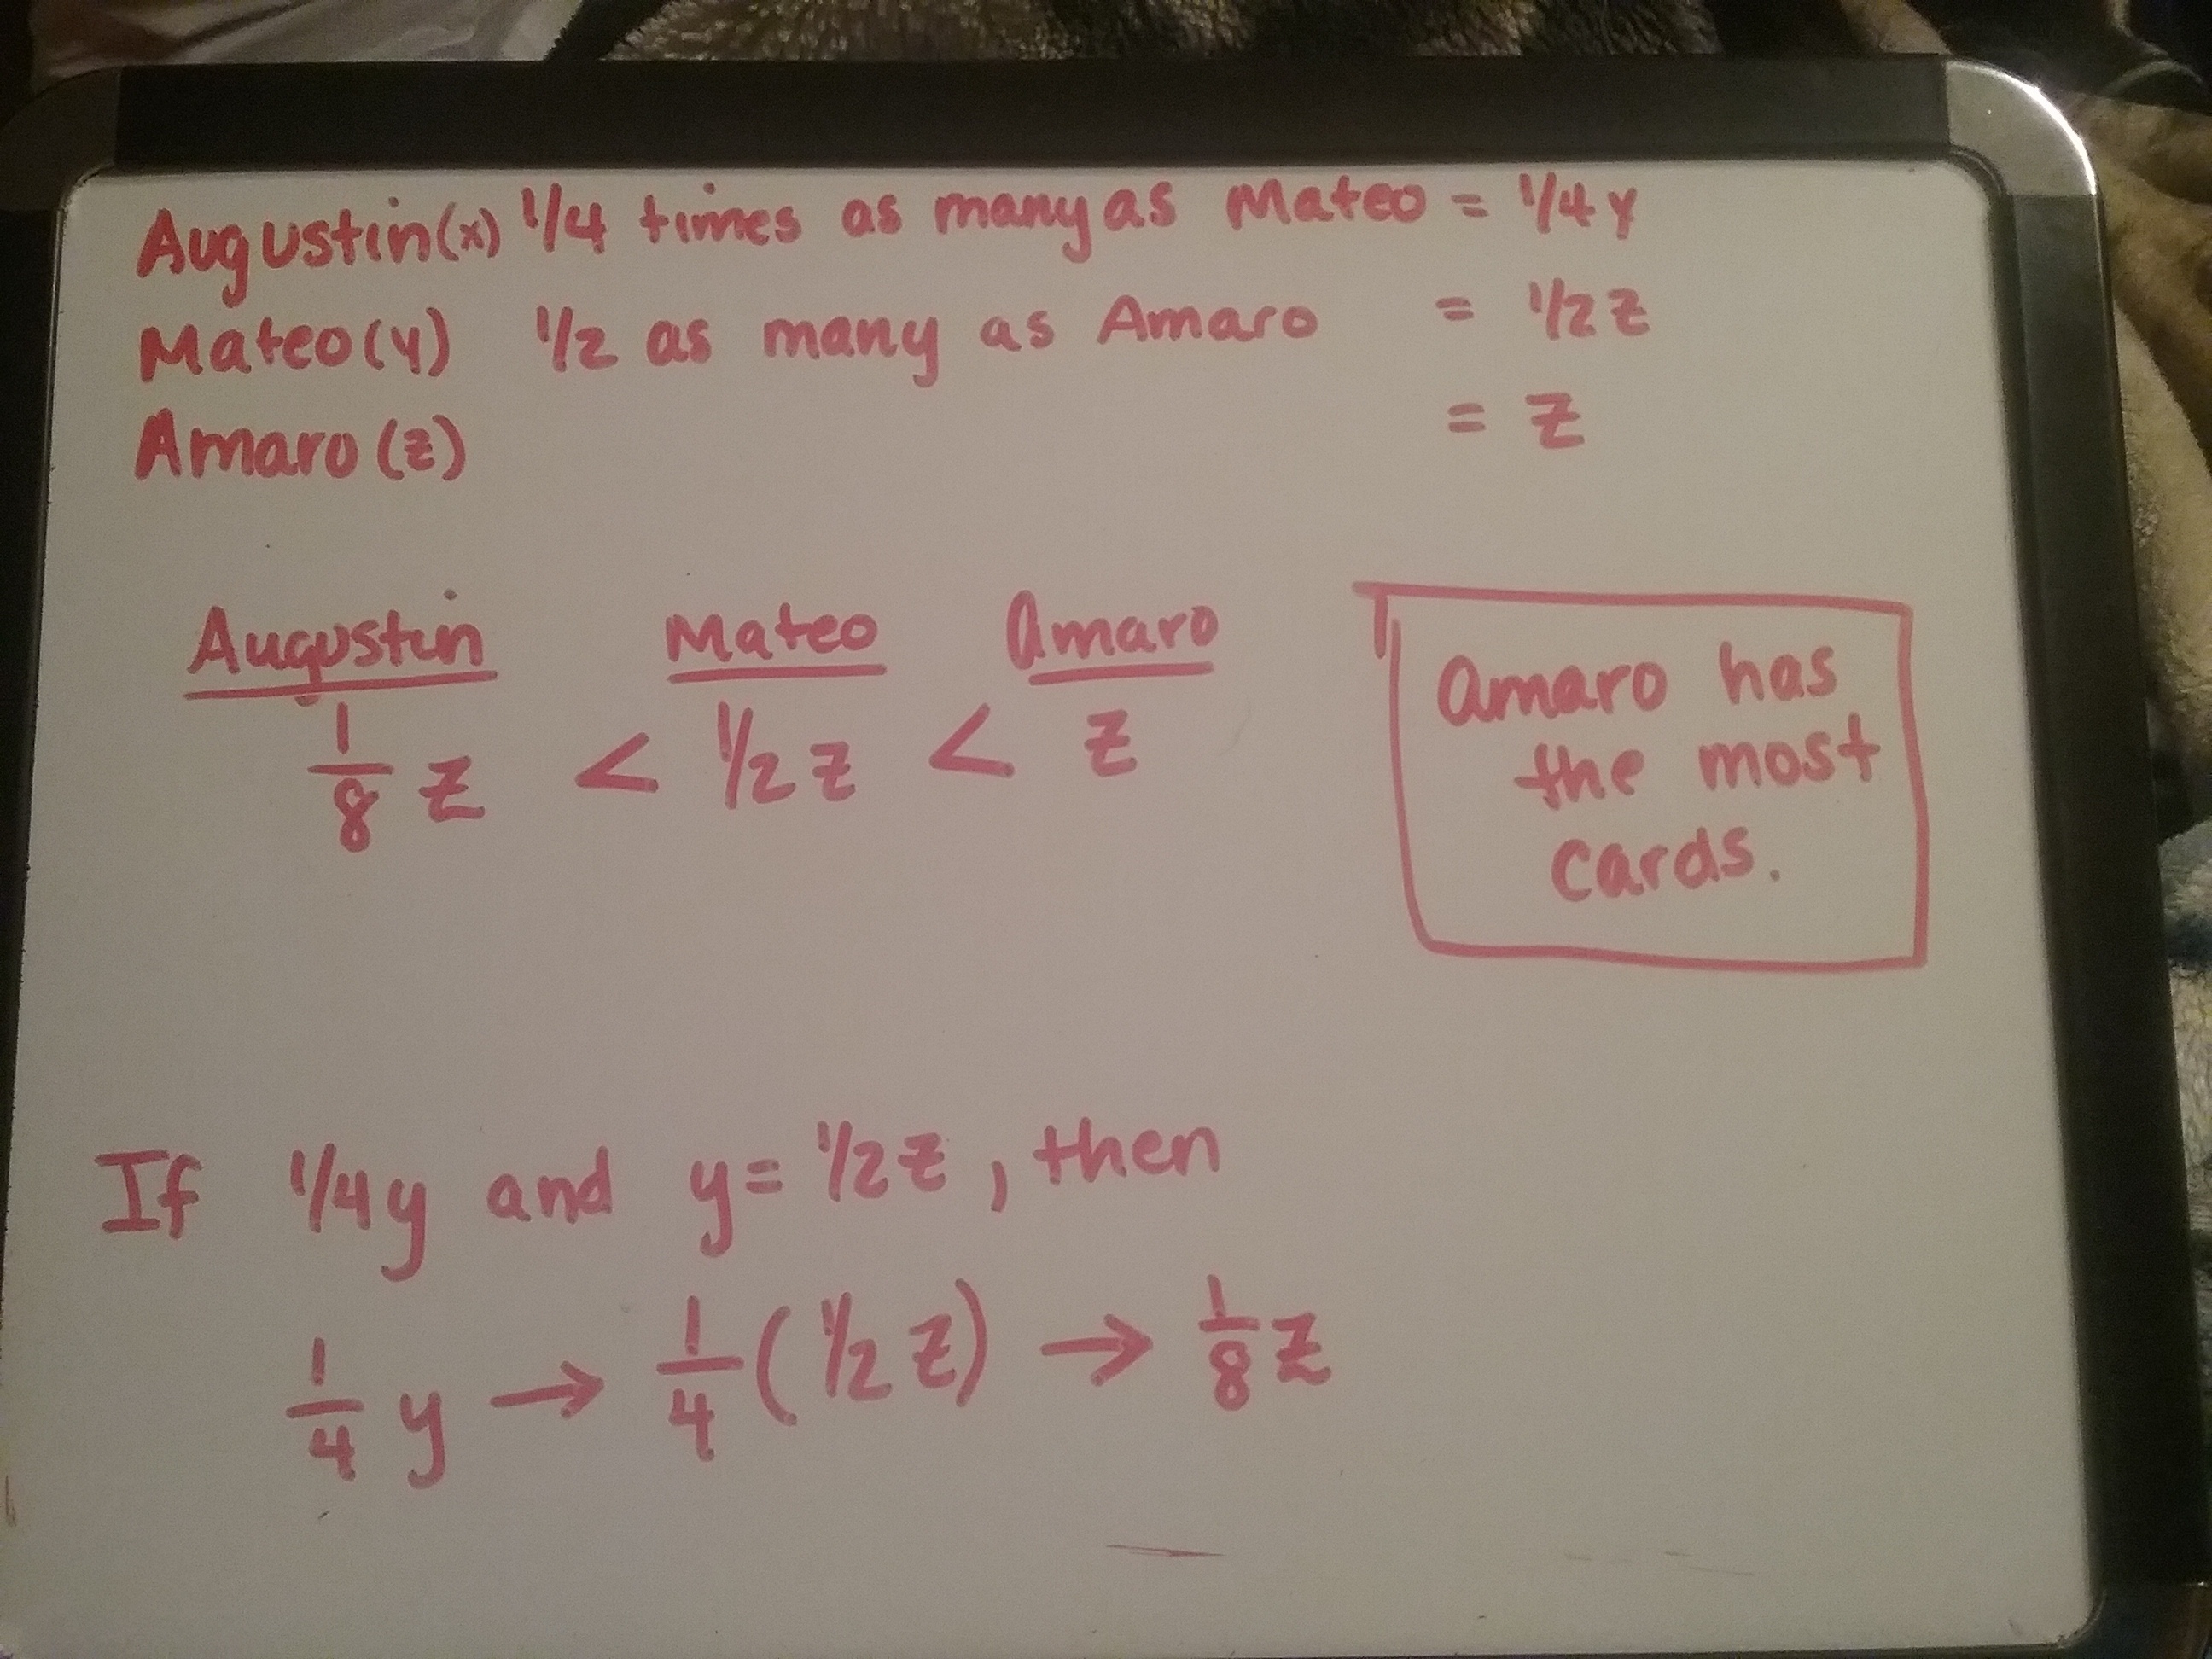 Augustin(x) 1/4 times as many as Mateo = 1/4 y
Mateo(y) 1/2 as many as Amaro = 1/2 z
Amaro(z) = z
Augustin Mateo Amaro
1/8 z < 1/2 z < z
Amaro has
the most
cards.
If 1/4y and y = 1/2z, then
1/4 y → 1/4 (1/2 z) → 1/8 z